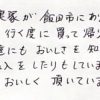 実家が飯田市にあ
行く度に買って帰り
達にもおいしさを知
入をしたりもしています
おいしく頂いています